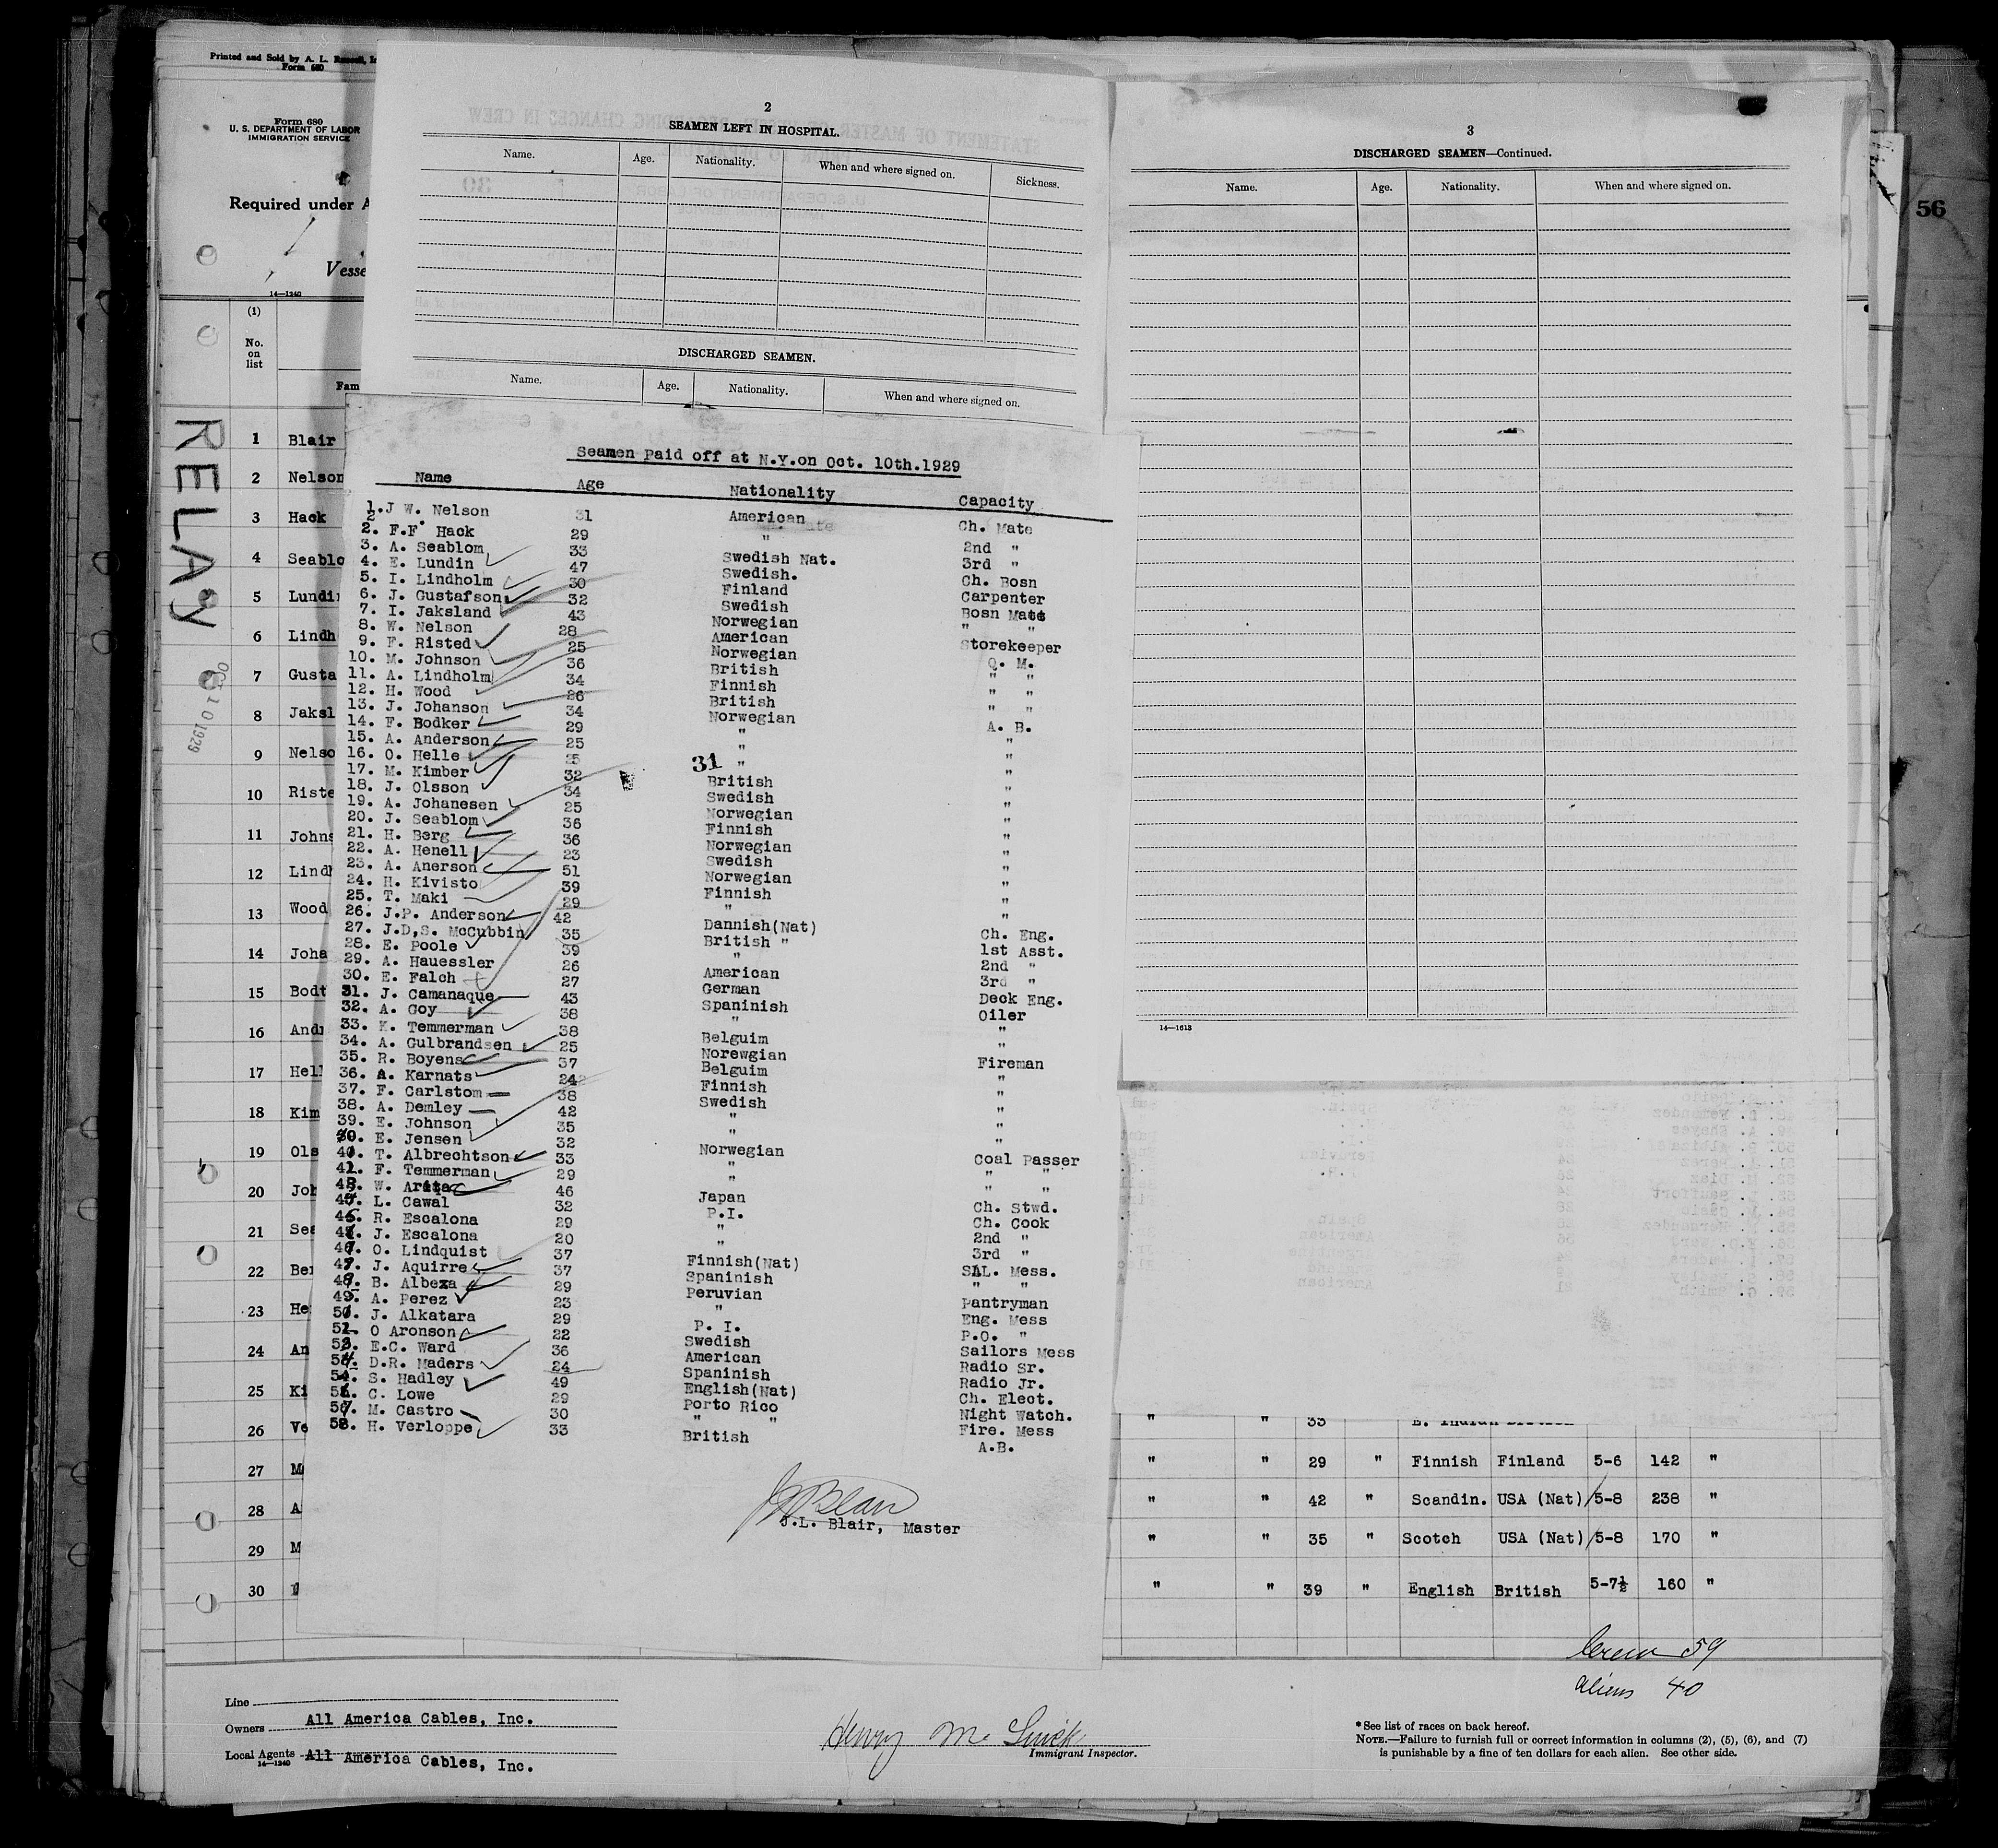 Printed and Sold by A. L.
Form 680
Form 680
U. S. DEPARTMENT OF LABOR
IMMIGRATION SERVICE
Required under A
Vesse
14—1240
(1)
No.
on
list
Fam
RELAY
OCT 10 1929
1 Blair
2 Nelson
3 Hack
4 Seablo
5 Lundi
6 Lindh
7 Gusta
8 Jaksl
9 Nelso
10 Riste
11 Johns
12 Lind
13 Wood
14 Joha
15 Bodt
16 And
17 Hel
18 Kim
19 Ols
20 Joh
21 Sea
22 Be
23 He
24 An
25 Ki
26 Ve
27 M
28 A
29 M
30
2
SEAMEN LEFT IN HOSPITAL.
Name. Age. Nationality. When and where signed on. Sickness.
DISCHARGED SEAMEN.
Name. Age. Nationality. When and where signed on.
3
DISCHARGED SEAMEN—Continued.
Name. Age. Nationality. When and where signed on.
14—1613
56
Seamen Paid off at N.Y.on Oct. 10th.1929
Name Age Nationality Capacity
1.J W. Nelson 31 American Ch. Mate
2. F.F Hack 29 " 2nd "
3. A. Seablom 33 Swedish Nat. 3rd "
4. E. Lundin 47 Swedish. Ch. Bosn
5. I. Lindholm 30 Finland Carpenter
6. J. Gustafson 32 Swedish Bosn Mate
7. I. Jaksland 43 Norwegian " "
8. W. Nelson 28 American Storekeeper
9. F. Risted 25 Norwegian Q. M.
10. M. Johnson 36 British " "
11. A. Lindholm 34 Finnish " "
12. H. Wood 26 British " "
13. J. Johanson 34 Norwegian A. B.
14. F. Bodker 29 " "
15. A. Anderson 25 " "
16. O. Helle 25 " "
17. M. Kimber 32 British "
18. J. Olsson 34 Swedish "
19. A. Johanesen 25 Norwegian "
20. J. Seablom 36 Finnish "
21. H. Berg 36 Norwegian "
22. A. Henell 23 Swedish "
23. A. Anerson 51 Norwegian "
24. H. Kivisto 39 Finnish "
25. T. Maki 29 " "
26. J.P. Anderson 42 Dannish(Nat) Ch. Eng.
27. J.D,S. McCubbin 35 British " 1st Asst.
28. E. Poole 39 " 2nd "
29. A. Hauessler 26 American 3rd "
30. E. Falch 27 German Deck Eng.
31. J. Camanaque 43 Spaninish Oiler
32. A. Goy 38 " "
33. K. Temmerman 38 Belguim "
34. A. Gulbrandsen 25 Norewgian Fireman
35. R. Boyens 37 Belguim "
36. A. Karnats 24 Finnish "
37. F. Carlstom 38 Swedish "
38. A. Demley 42 " "
39. E. Johnson 35 " "
40. E. Jensen 32 Norwegian Coal Passer
41. T. Albrechtson 33 " " "
42. F. Temmerman 29 " "
43. W. Araga 46 Japan Ch. Stwd.
L. Cawal 32 P.I. Ch. Cook
R. Escalona 29 " 2nd "
J. Escalona 20 " 3rd "
O. Lindquist 37 Finnish(Nat) SAL. Mess.
J. Aquirre 37 Spaninish " "
B. Albexa 29 Peruvian Pantryman
A. Perez 23 " Eng. Mess
J. Alkatara 29 P. I. P.O. "
O Aronson 22 Swedish Sailors Mess
E.C. Ward 36 American Radio Sr.
D.R. Maders 24 Spaninish Radio Jr.
S. Hadley 49 English(Nat) Ch. Elect.
C. Lowe 29 Porto Rico Night Watch.
57. M. Castro 30 " " Fire. Mess
58. H. Verloppe 33 British A.B.
31
J.L. Blair, Master
" " 33 E. Indian British
" " 29 " Finnish Finland 5-6 142 "
" " 42 " Scandin. USA (Nat) 5-8 238 "
" " 35 " Scotch USA (Nat) 5-8 170 "
" " 39 " English British 5-7½ 160 "
Crew 59
Aliens 40
Line
Owners All America Cables, Inc.
Local Agents All America Cables, Inc.
14—1240
Henry
Immigrant Inspector.
*See list of races on back hereof.
NOTE.—Failure to furnish full or correct information in columns (2), (5), (6), and (7)
is punishable by a fine of ten dollars for each alien. See other side.